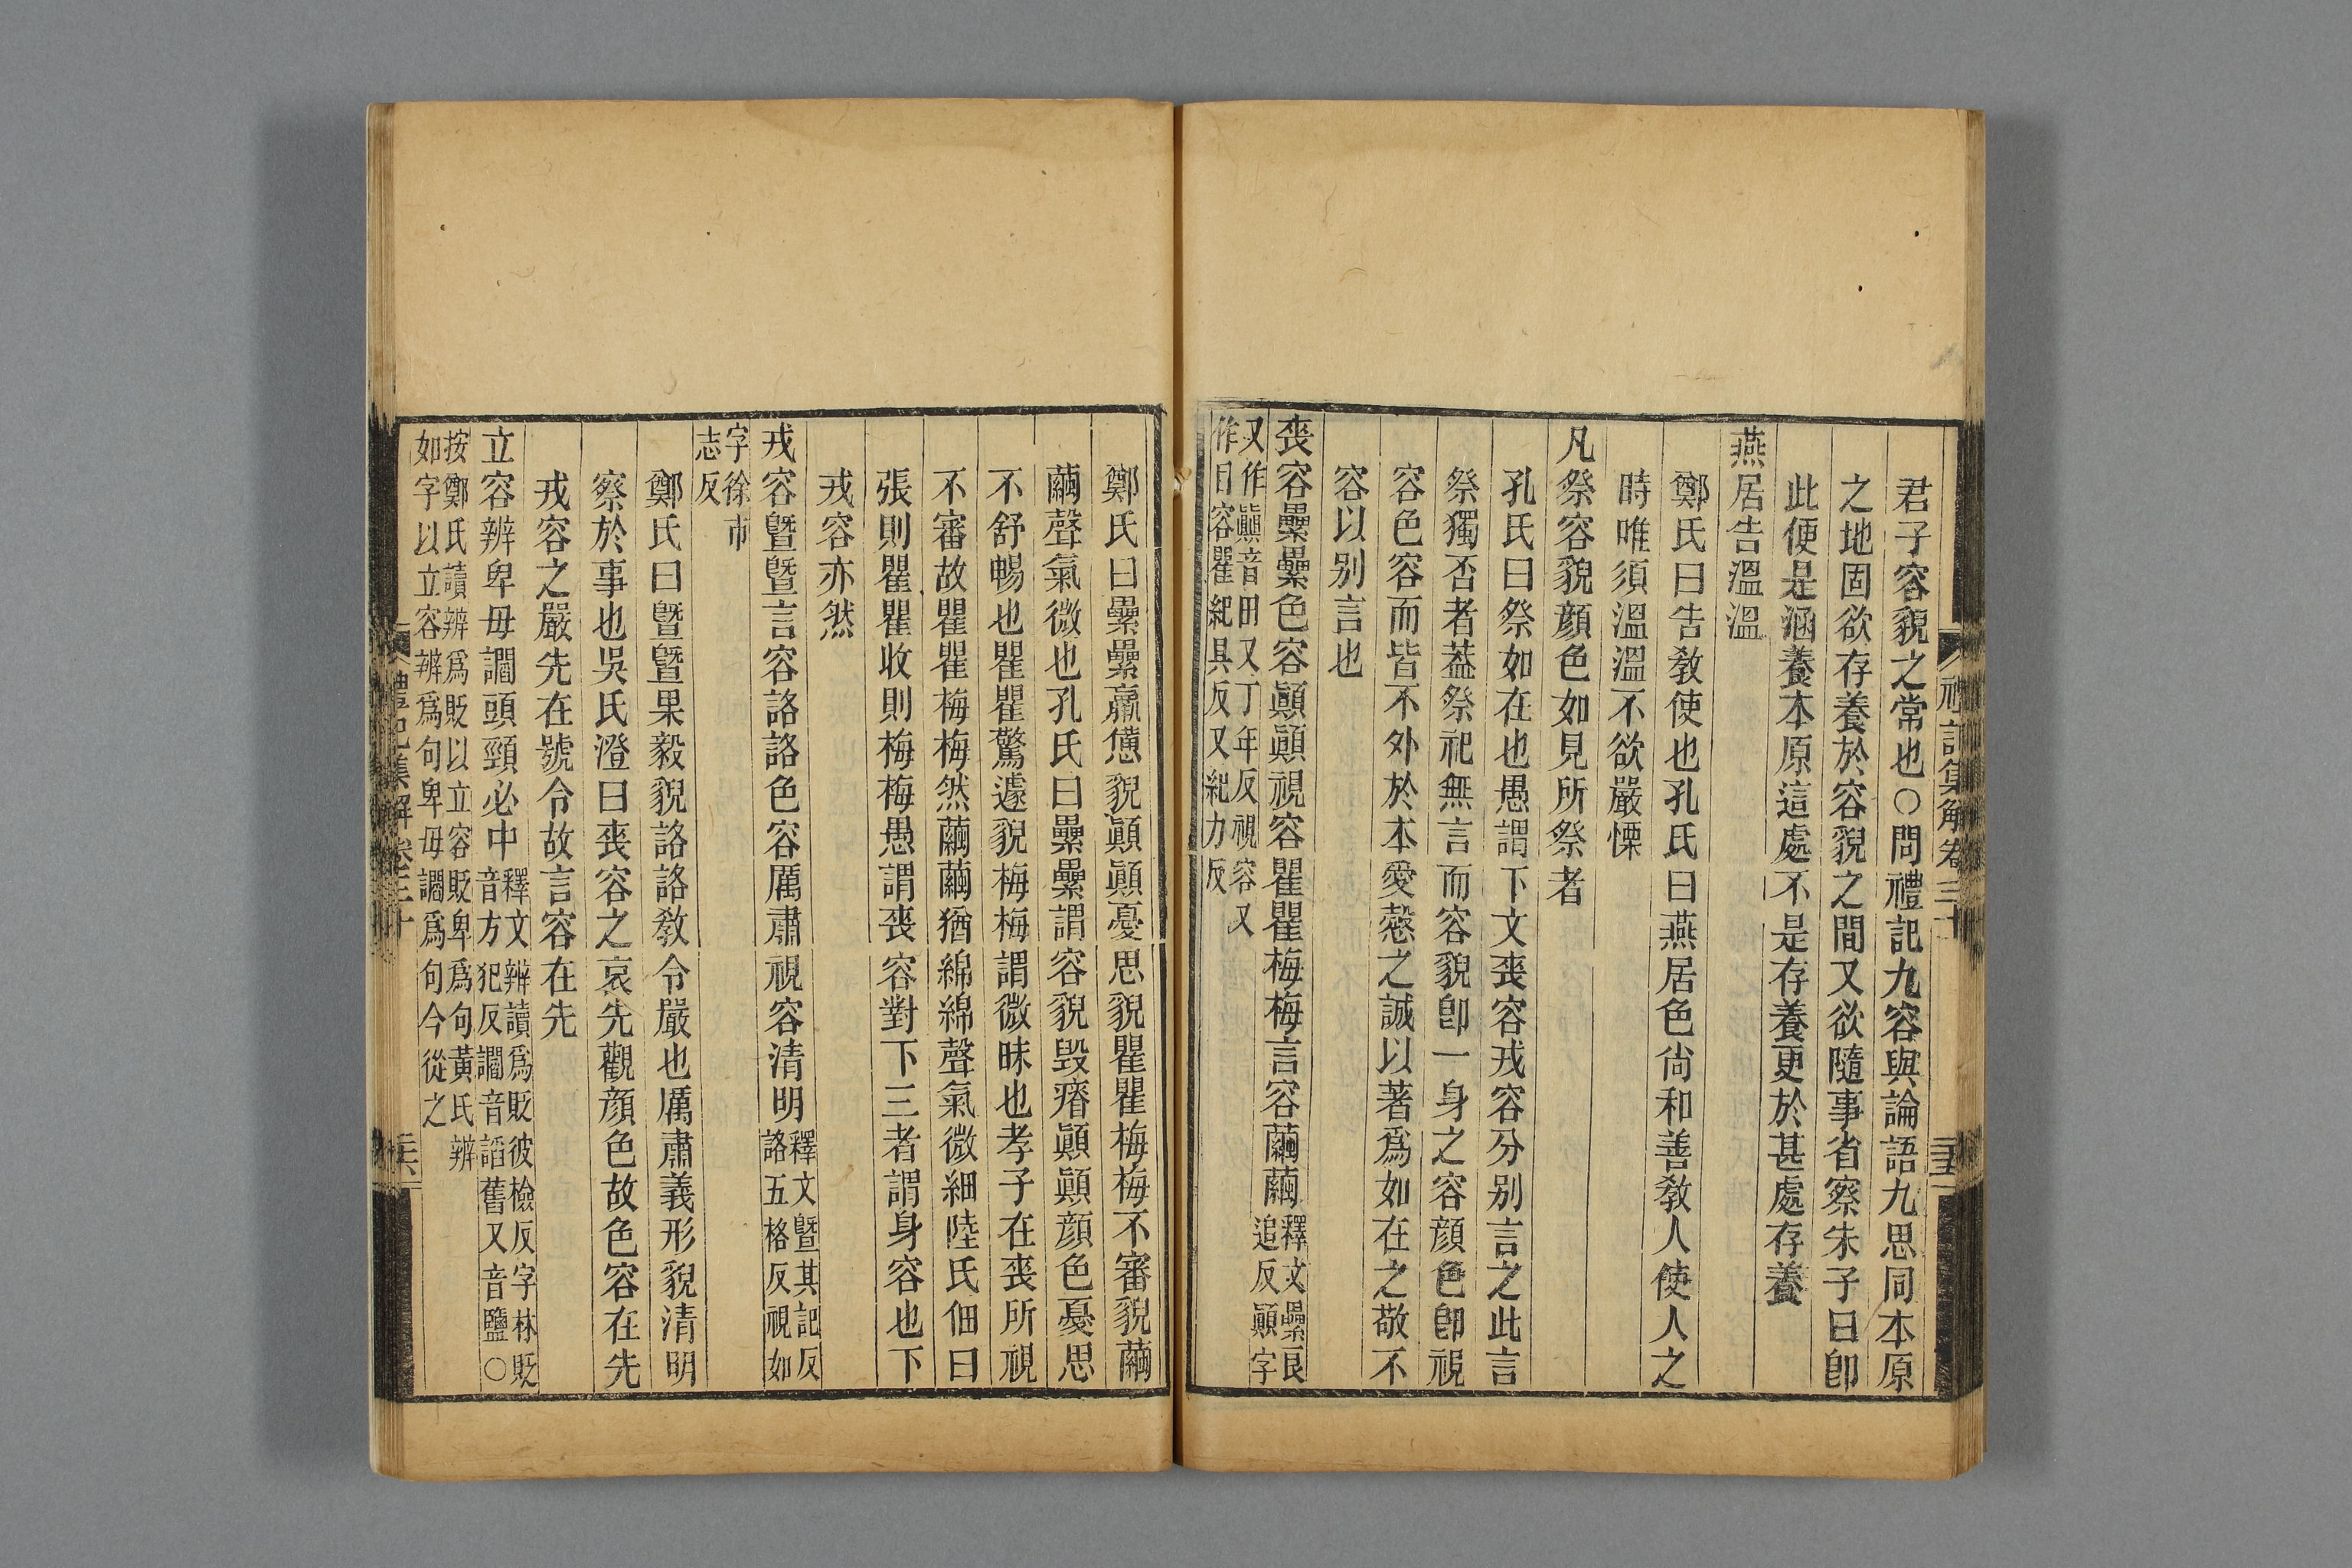 禮記集解卷三十
三五
君子容貌之常也○問禮記九容與論語九思同本原
之地固欲存養於容貌之間又欲隨事省察朱子曰卽
此便是涵養本原這處不是存養更於甚處存養
燕居告溫溫
鄭氏曰告敎使也孔氏曰燕居色尙和善敎人使人之
時唯須溫溫不欲嚴慄
凡祭容貌顔色如見所祭者
孔氏曰祭如在也愚謂下文喪容戎容分别言之此言
祭獨否者葢祭祀無言而容貌卽一身之容顔色卽視
容色容而皆不外於本愛慤之誠以著爲如在之敬不
容以别言也
喪容纍纍色容顚顚視容瞿瞿梅梅言容繭繭釋文纍良
追反顚字
又作顛音田又丁年反視容又
作目容瞿紀具反又紀力反
鄭氏曰纍纍羸憊貌顚顚憂思貌瞿瞿梅梅不審貌繭
繭聲氣微也孔氏曰纍纍謂容貌毁瘠顚顚顔色憂思
不舒暢也瞿瞿驚遽貌梅梅謂微昧也孝子在喪所視
不審故瞿瞿梅梅然繭繭猶綿綿聲氣微細陸氏佃曰
張則瞿瞿收則梅梅愚謂喪容對下三者謂身容也下
戎容亦然
戎容曁曁言容詻詻色容厲肅視容清明釋文曁其記反
詻五格反視如
字徐市
志反
鄭氏曰曁曁果毅貌詻詻敎令嚴也厲肅義形貌清明
察於事也吳氏澄曰喪容之哀先觀顔色故色容在先
戎容之嚴先在號令故言容在先
立容辨卑毋讇頭頸必中釋文辨讀爲貶彼檢反字林貶
音方犯反讇音諂舊又音鹽○
按鄭氏讀辨爲貶以立容貶卑爲句黃氏辨
如字以立容辨爲句卑毋讇爲句今從之
禮記集解卷三十
三六